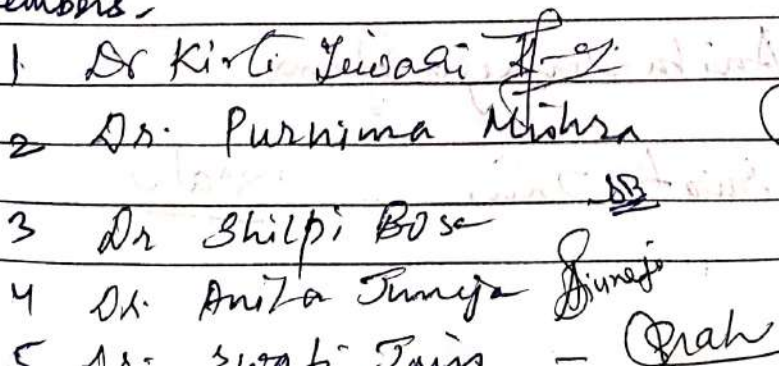 embers,
1. Dr Kirti Tiwari
2 Dr. Purnima Mishra
3 Dr Shilpi Bose SB
4 Dr. Anita Juneja Ajuneja
5 Dr. Swati Jain -